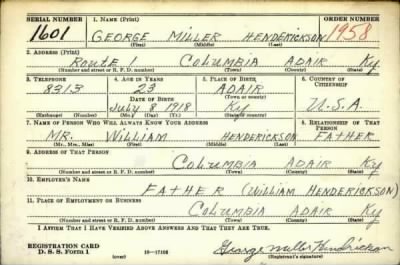 SERIAL NUMBER 1. NAME (Print) ORDER NUMBER
1601 GEORGE MILLER HENDERICKSON 1958
(First) (Middle) (Last)
2. ADDRESS (Print)
ROUTE 1 COLUMBIA ADAIR Ky
(Number and street or R. F. D. number) (Town) (County) (State)
3. TELEPHONE 4. AGE IN YEARS 5. PLACE OF BIRTH 6. COUNTRY OF CITIZENSHIP
8313 23 ADAIR
(Town or county)
DATE OF BIRTH
JULY 8 1918 Ky U.S.A.
(Exchange) (Number) (Mo.) (Day) (Yr.) (State or country)
7. NAME OF PERSON WHO WILL ALWAYS KNOW YOUR ADDRESS 8. RELATIONSHIP OF THAT PERSON
MR. WILLIAM HENDERICKSON FATHER
(Mr., Mrs., Miss) (First) (Middle) (Last)
9. ADDRESS OF THAT PERSON
COLUMBIA ADAIR Ky
(Number and street or R. F. D. number) (Town) (County) (State)
10. EMPLOYER'S NAME
FATHER (WILLIAM HENDERICKSON)
11. PLACE OF EMPLOYMENT OR BUSINESS
COLUMBIA ADAIR Ky
(Number and street or R. F. D. number) (Town) (County) (State)
I AFFIRM THAT I HAVE VERIFIED ABOVE ANSWERS AND THAT THEY ARE TRUE.
REGISTRATION CARD
D. S. S. Form 1 (over) 16-17105 George Miller Hendrickson
(Registrant's signature)